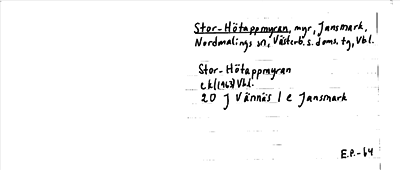 Stor-Hötappmyran, myr, Jansmark,
Nordmalings sn, Västerb. s. doms. tg, Vbl.
Stor-Hötappmyran
ek (1963) Vbl.
20 J Vännäs 1 e Jansmark
E.P.-64